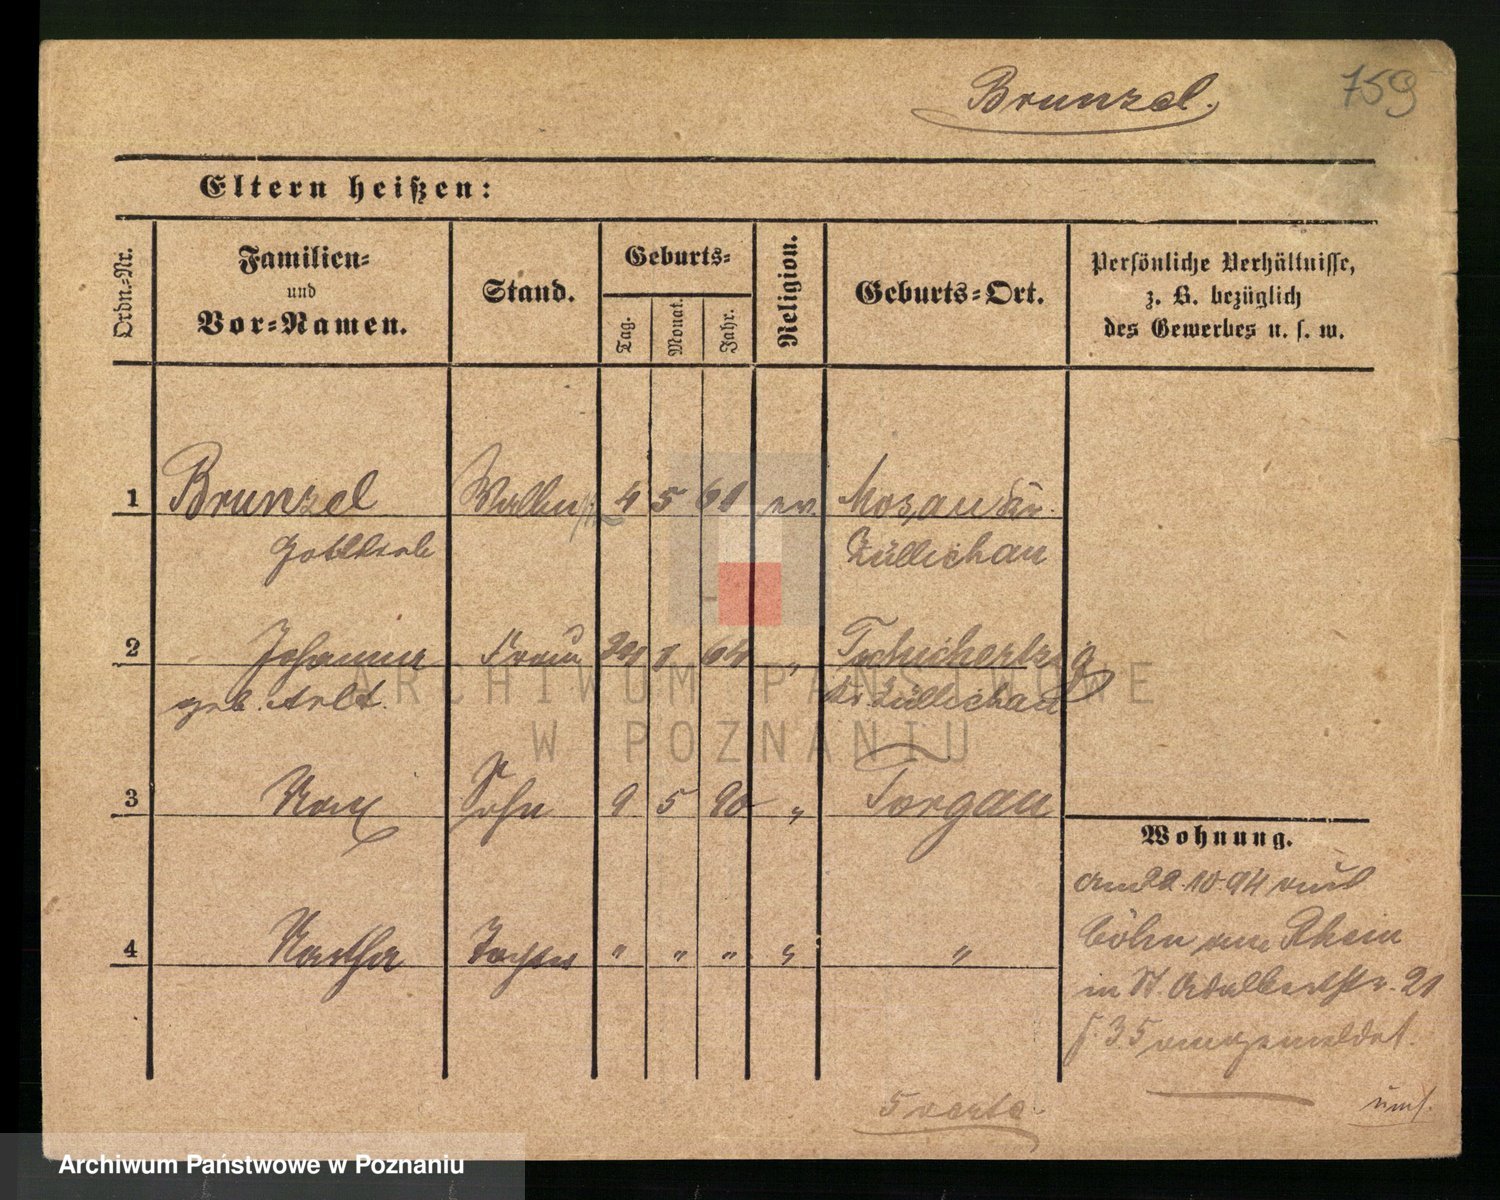 Brunzel.
759
Eltern heißen:
Ordn.-Nr.
Familien-
und
Vor-Namen.
Stand.
Geburts-
Tag.
Monat.
Jahr.
Religion.
Geburts-Ort.
Persönliche Verhältnisse,
z. B. bezüglich
des Gewerbes u. s. w.
1 Brunzel 4 5 61 ev. Mosau Kr.
Gottlieb Züllichau
2 Johanna Frau 64 " Tschicherzig
geb. Arlt. Kr. Züllichau
3 Max Sohn 9 5 90 " Torgau
Wohnung.
4 Martha Tochter " " " " "
am 22.10.94 aus
Cöln am Rhein
in St. Adalbertstr. 21
angemeldet.
5 Karte.
umf.
ARCHIWUM PAŃSTWOWE
W POZNANIU
Archiwum Państwowe w Poznaniu